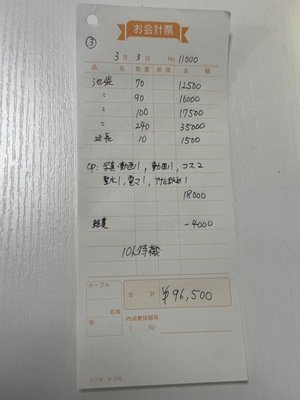 お会計票
③
3月 3日 No. 11000
品 名 数量 単価 金 額
池袋 70 12500
〃 90 16000
〃 100 17500
〃 240 35000
延長 10 1500
OP: 写真・動画1, 動画1, コス2
聖水1, 電マ1, アナル舐め1
18000
-4000
10h待機
テーブル
合 計 ¥96,500
名様
係
内消費税額等
( %)